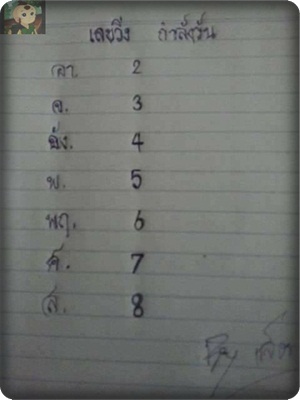 เลขวิ่ง กำลังวัน
อา. 2
จ. 3
อัง. 4
พ. 5
พฤ. 6
ศ. 7
ส. 8
By